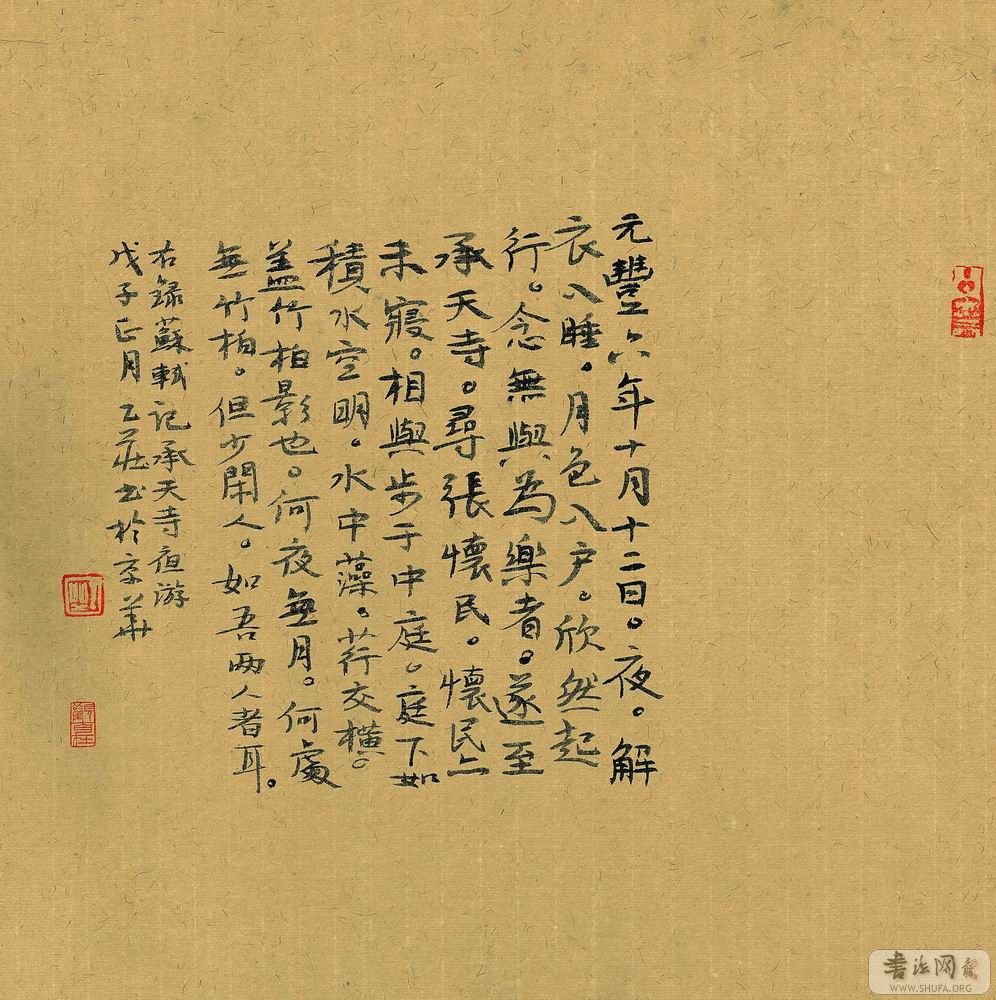 元豐六年十月十二日。夜。解
衣入睡。月色入户。欣然起
行。念無與為樂者。遂至
承天寺。尋張懷民。懷民亦
未寢。相與步于中庭。庭下如
積水空明。水中藻。荇交橫。
盖竹柏影也。何夜無月。何處
無竹柏。但少閑人。如吾两人者耳。
右録蘇軾記承天寺夜游
戊子正月乙莊书於京華
書法网
WWW.SHUFA.ORG